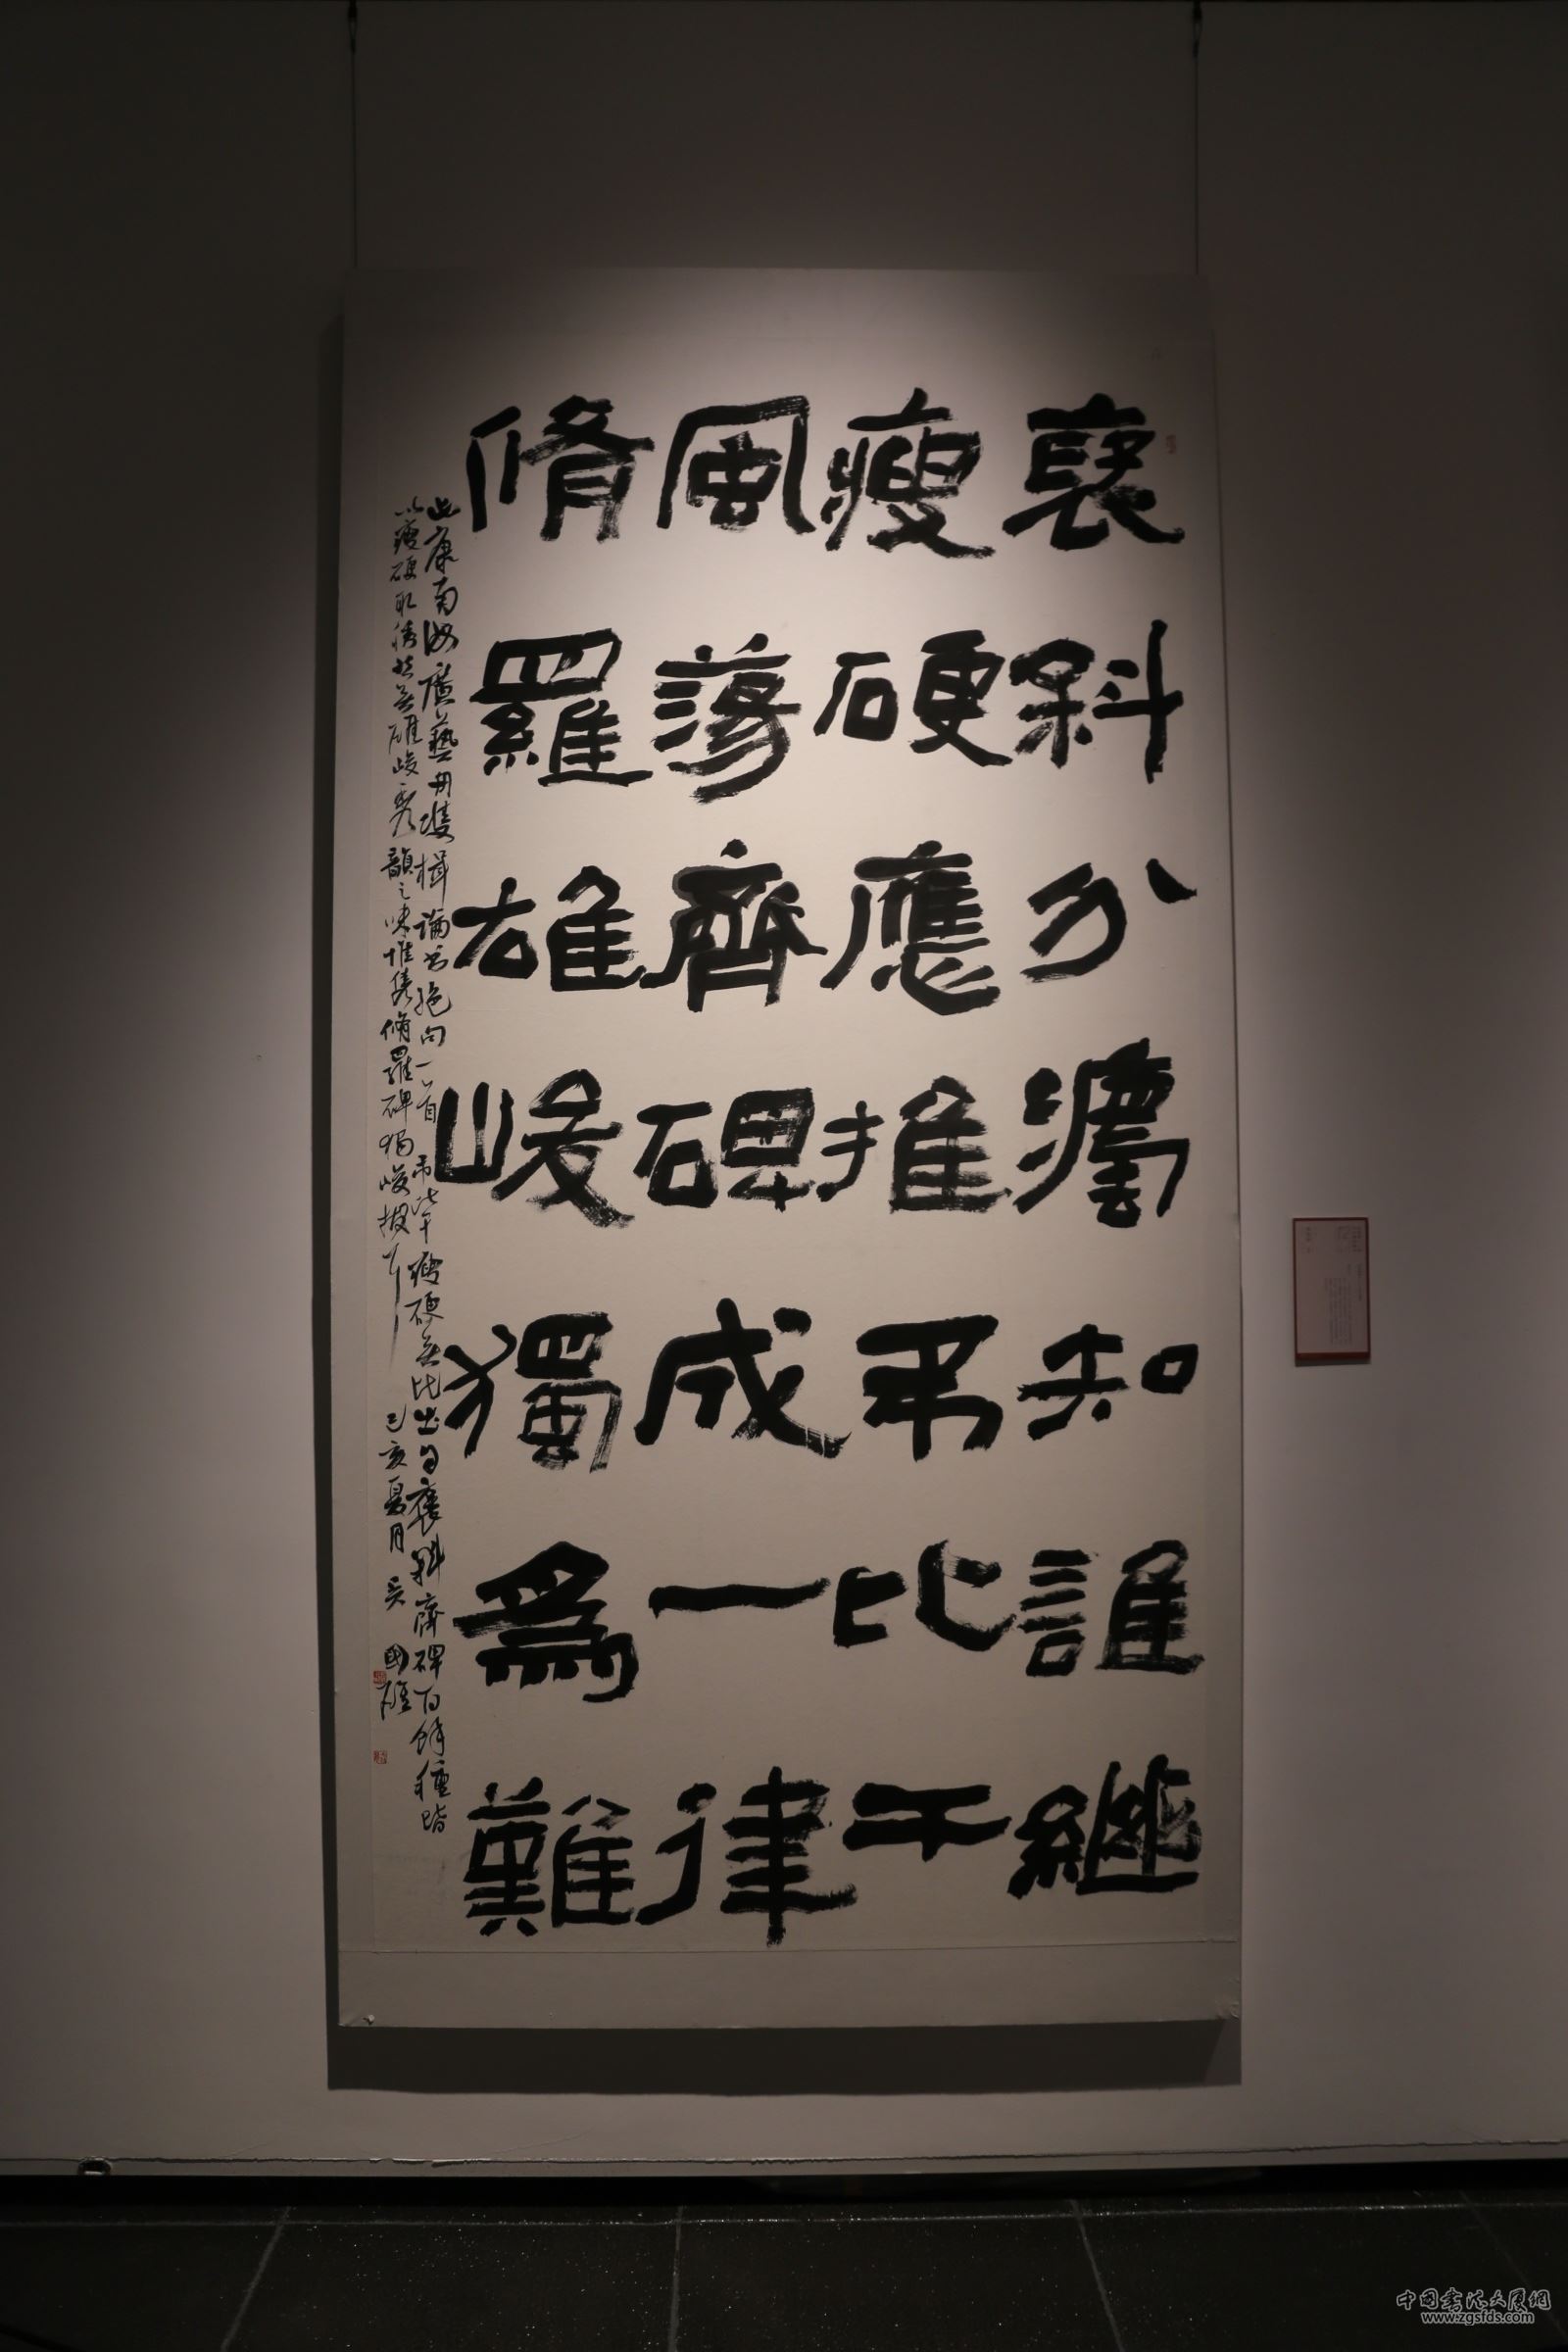 褒斜分知誰繼
瘦硬應推弔比干
風蕩齊碑成一律
脩羅雄峻獨為難
此康南海廣藝舟雙楫論書絕句一首 弔比干瘦硬無比出自褒斜齊碑百餘種皆
以瘦硬取勝然無雄峻秀韻之味惟雋脩羅碑獨峻拔耳 己亥夏月 吳國雄
中國書法大廈網
www.zgsfds.com